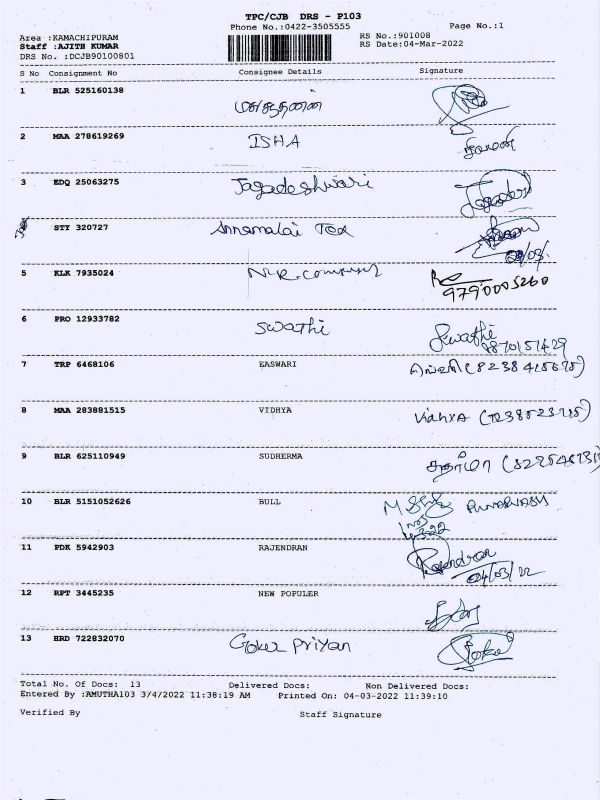 TPC/CJB DRS - P103
Phone No.:0422-3505555
Page No.:1
Area :KAMACHIPURAM
RS No.:901008
Staff :AJITH KUMAR
RS Date:04-Mar-2022
DRS No. :DCJB90100801
S No Consignment No Consignee Details Signature
1 BLR 525160138
2 MAA 278619269 ISHA
3 EDQ 25063275 Jagadeshwari
STY 320727 Annamalai Tex
5 KLK 7935024 9790005260
6 PRO 12933782 Swathi Swathi
7 TRP 6468106 EASWARI
8 MAA 283881515 VIDHYA VidhyA
9 BLR 625110949 SUDHERMA சுதர்மா
10 BLR 5151052626 BULL
11 PDK 5942903 RAJENDRAN Rajendran
04/03/22
12 RPT 3445235 NEW POPULER
13 HRD 722832070 Gokul Priyan Gokul
Total No. Of Docs: 13 Delivered Docs: Non Delivered Docs:
Entered By :AMUTHA103 3/4/2022 11:38:19 AM Printed On: 04-03-2022 11:39:10
Verified By Staff Signature